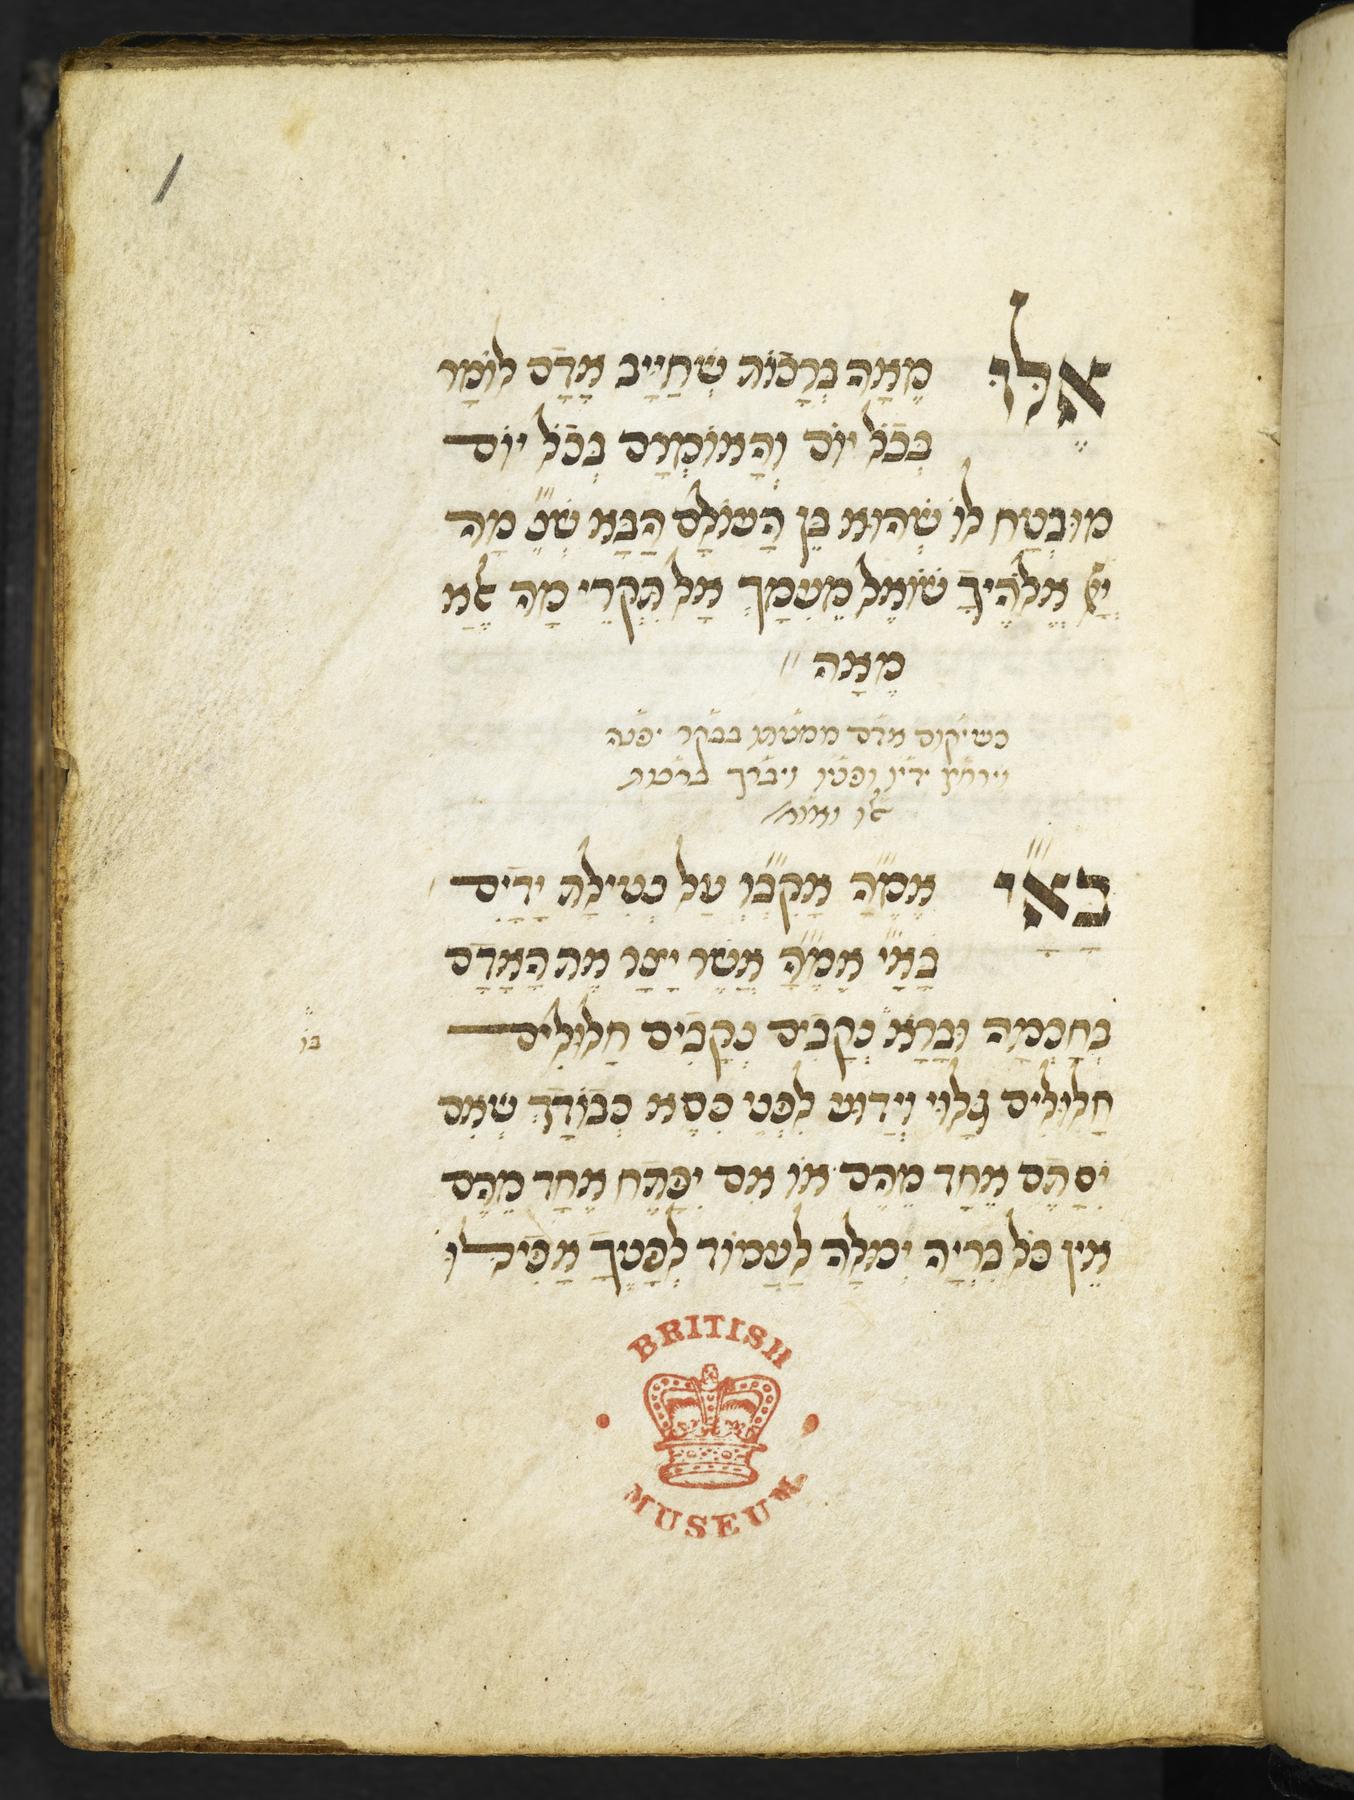 1
אֵלּוּ מֵאָה בְּרָכוֹת שֶׁחַיָּיב אָדָם לוֹמַר
בְּכָל יוֹם וְהָאוֹמְרָם בְּכָל יוֹם
מוּבְטָח לוֹ שֶׁהוּא בֶּן הָעוֹלָם הַבָּא שֶׁנֶּ״ מָה
אֱלֹהֶיךָ שׁוֹאֵל מֵעִמָּךְ אַל תִּקְרֵי מָה אֶלָּא
מֵאָה
כשיקום אדם ממטתו בבקר יפנה
וירחץ ידיו ופניו ויברך ברכות
אלו
בָּאָ״י אֱמֶ״הָ אָקִבְּ״וְ עַל נְטִילַת יָדָיִם
בָּאָ״י אֱמֶ״הָ אֲשֶׁר יָצַר אֶת הָאָדָם
בְּחָכְמָה וּבָרָא נְקָבִים נְקָבִים חֲלוּלִים
בו
חֲלוּלִים גָּלוּי וְיָדוּעַ לִפְנֵי כִסֵּא כְבוֹדָךְ שֶׁאִם
יִסָּתֵם אֶחָד מֵהֶם אוֹ אִם יִפָּתֵחַ אֶחָד מֵהֶם
אֵין כָּל בִּרְיָה יְכוֹלָה לַעֲמוֹד לְפָנֶיךָ אֲפִילוּ
BRITISH
MUSEUM